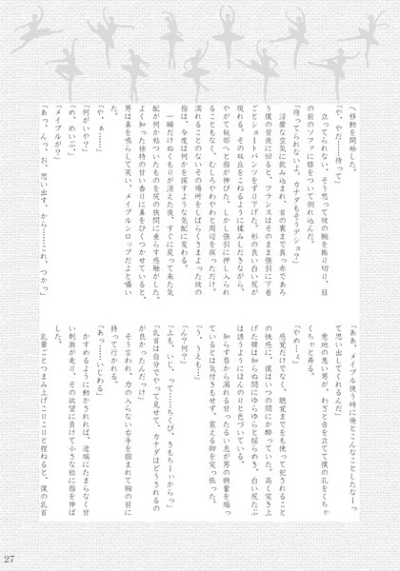 へ移動を開始した。
「や、やだ……待って」
立ってられない、そう思って彼の腕を振り切り、目
の前のソファに膝をついて倒れ込んだ。
「待ってられないよ。カナダもそうデショ？」
淫靡な空気に飲み込まれ、首の裏まで真っ赤であろ
う僕の背後に回ると、フランスはそのまま強引に下着
ごとショートパンツをずり下げた。形の良い白い尻が
現れる。その双丘をこねるように揉みしだきながら、
やがて秘部へと指が伸びた。しかし強引に押し入られ
ることもなく、むしろやわやわと周辺を探っただけ。
濡れることのないその場所をしばらくさまよった彼の
指は、今度は何かを探すような気配に変わる。
一瞬だけぬくもりが消えた後、すぐに戻って来た気
配が何か粘ついたものを尻の狭間に垂らす感触がした。
よく知った独特の甘い香りに鼻をひくつかせていると、
男は鼻を鳴らして笑い、メイプルシロップだよと囁い
た。
「や、ぁ……」
「何がいや？」
「め、めいぷ、る……」
「メイプルが？」
「あっ、んっ、お、思い出す、から……これ、つかっ」
「ああ、メイプル使う時に俺とこんなことしたなーっ
て思い出してくれるんだ」
意地の悪い男が、わざと音を立てて僕の孔をくちゃ
くちゃと弄る。
「やめーぇ」
感覚だけでなく、聴覚までをも使って犯されること
の快感に、僕はいつの間にか酔っていた。高く突き上
げた腰は知らぬ間にゆらゆらと揺らめき、白い尻たぶ
は誘うようにほんのりと色づいている。
知らず唇から濡れる甘ったるい息が男の興奮を煽っ
ているとは気付きもせず、震える脚を突っ張った。
「う、うえも…」
「ん？何？」
「上も、いじ、って……ちくび、きもちーぃからっ」
「乳首は自分でやって見せて、カナダはどうされるの
が良かったんだっけ」
そう言われ、力の入らない右手を掴まれて胸の前に
持って行かれる。
「あっ……いじわる」
かすめるように動かされれば、途端にたまらなく甘
い刺激が走り、その欲望に負けて小さな粒に指を伸ば
した。
乳暈ごとつまみ上げこりこりと捏ねると、僕の乳首
27